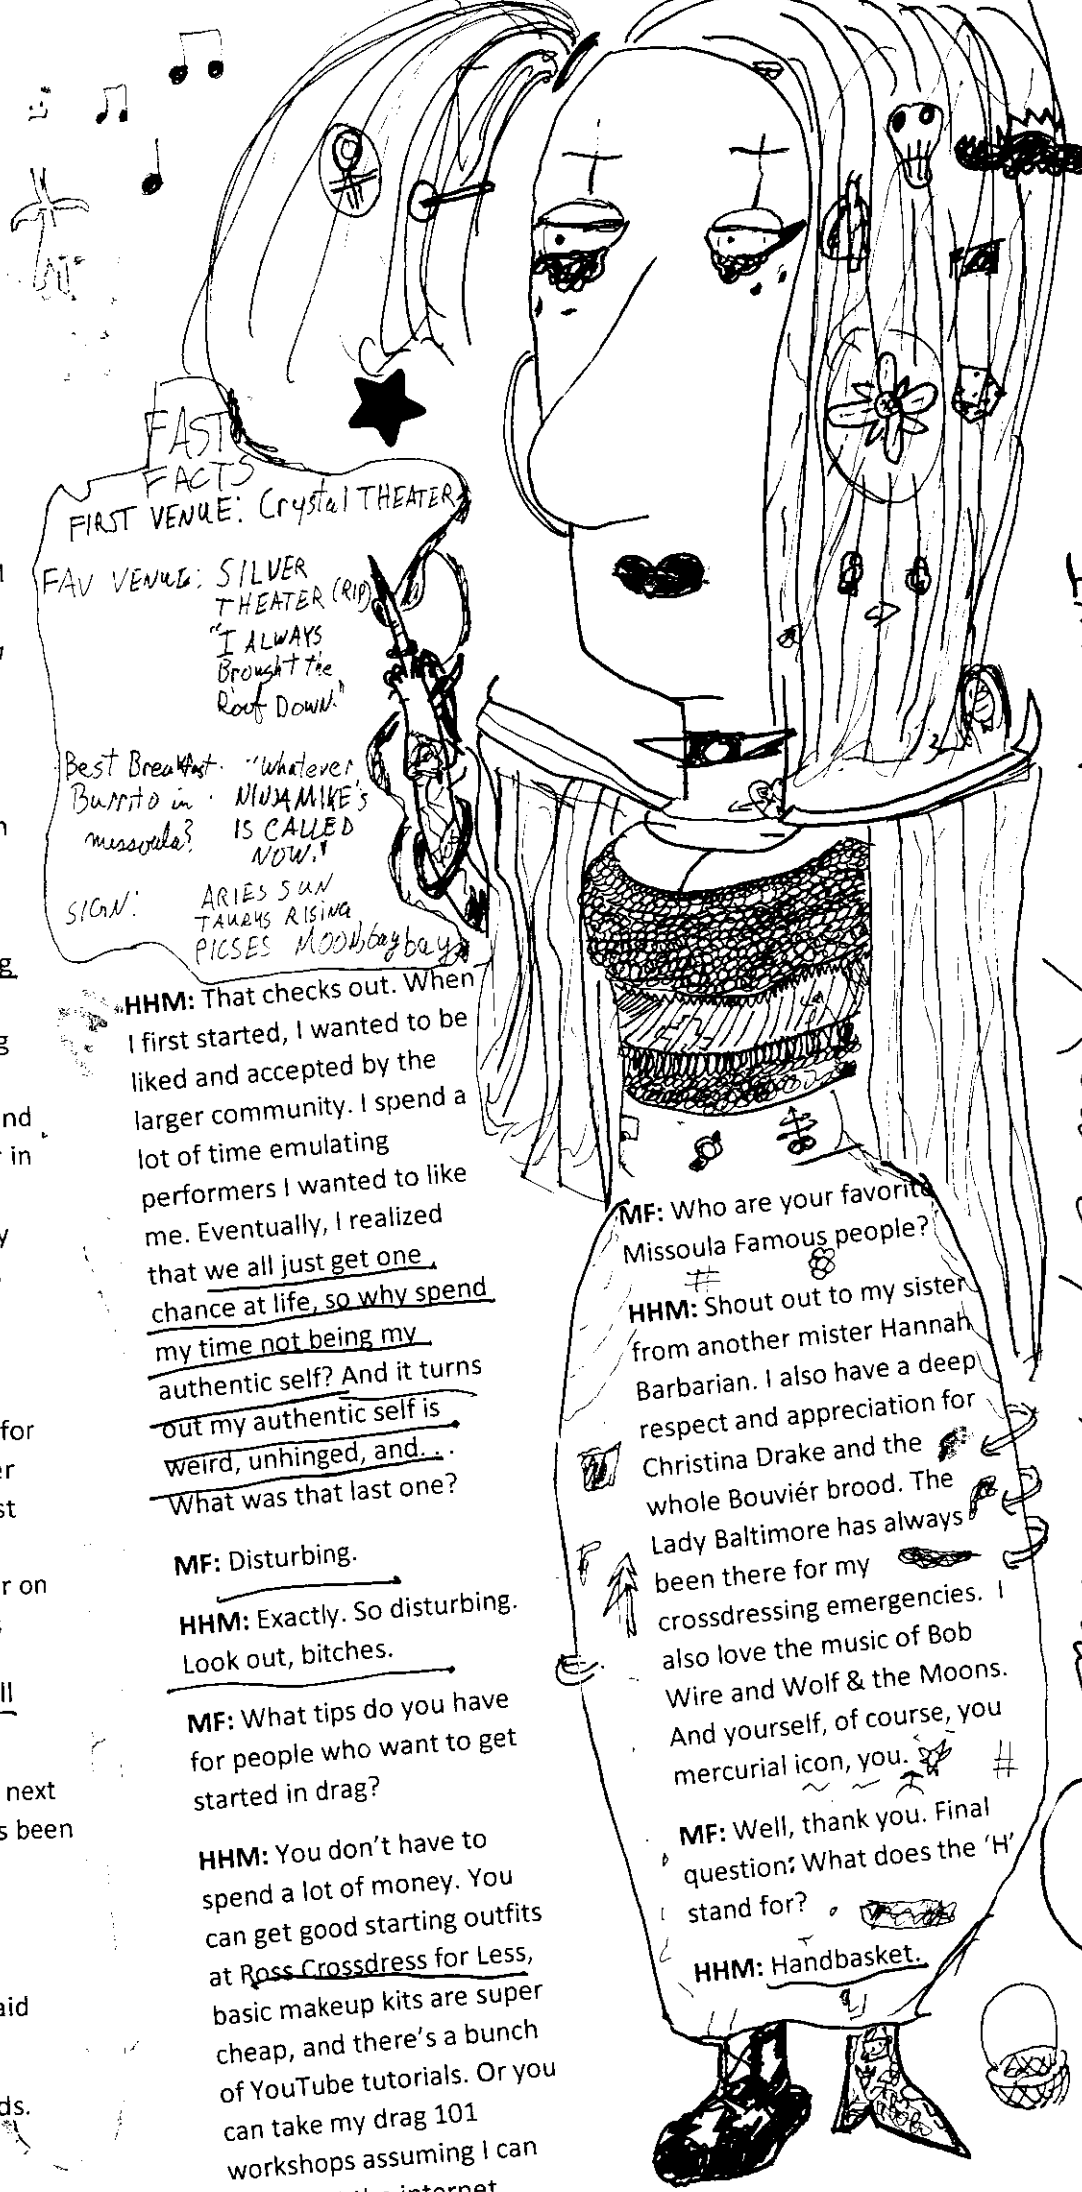 FAST
FACTS
FIRST VENUE: Crystal THEATER
FAV VENUE: SILVER
THEATER (RIP)
"I ALWAYS
Brought the
Roof DOWN."
Best Breakfast "Whatever
Burrito in NINJAMIKE'S
missoula? IS CALLED
NOW."
SIGN: ARIES SUN
TAURUS RISING
PICSES MOON baybay
HHM: That checks out. When
I first started, I wanted to be
liked and accepted by the
larger community. I spend a
lot of time emulating
performers I wanted to like
me. Eventually, I realized
that we all just get one
chance at life, so why spend
my time not being my
authentic self? And it turns
out my authentic self is
weird, unhinged, and. . .
What was that last one?
MF: Disturbing.
HHM: Exactly. So disturbing.
Look out, bitches.
MF: What tips do you have
for people who want to get
started in drag?
HHM: You don't have to
spend a lot of money. You
can get good starting outfits
at Ross Crossdress for Less,
basic makeup kits are super
cheap, and there's a bunch
of YouTube tutorials. Or you
can take my drag 101
workshops assuming I can
the internet
MF: Who are your favorite
Missoula Famous people?
HHM: Shout out to my sister
from another mister Hannah
Barbarian. I also have a deep
respect and appreciation for
Christina Drake and the
whole Bouviér brood. The
Lady Baltimore has always
been there for my
crossdressing emergencies. I
also love the music of Bob
Wire and Wolf & the Moons.
And yourself, of course, you
mercurial icon, you.
MF: Well, thank you. Final
question: What does the 'H'
stand for?
HHM: Handbasket.
nd
in
for
st
r on
ll
next
s been
aid
ds.